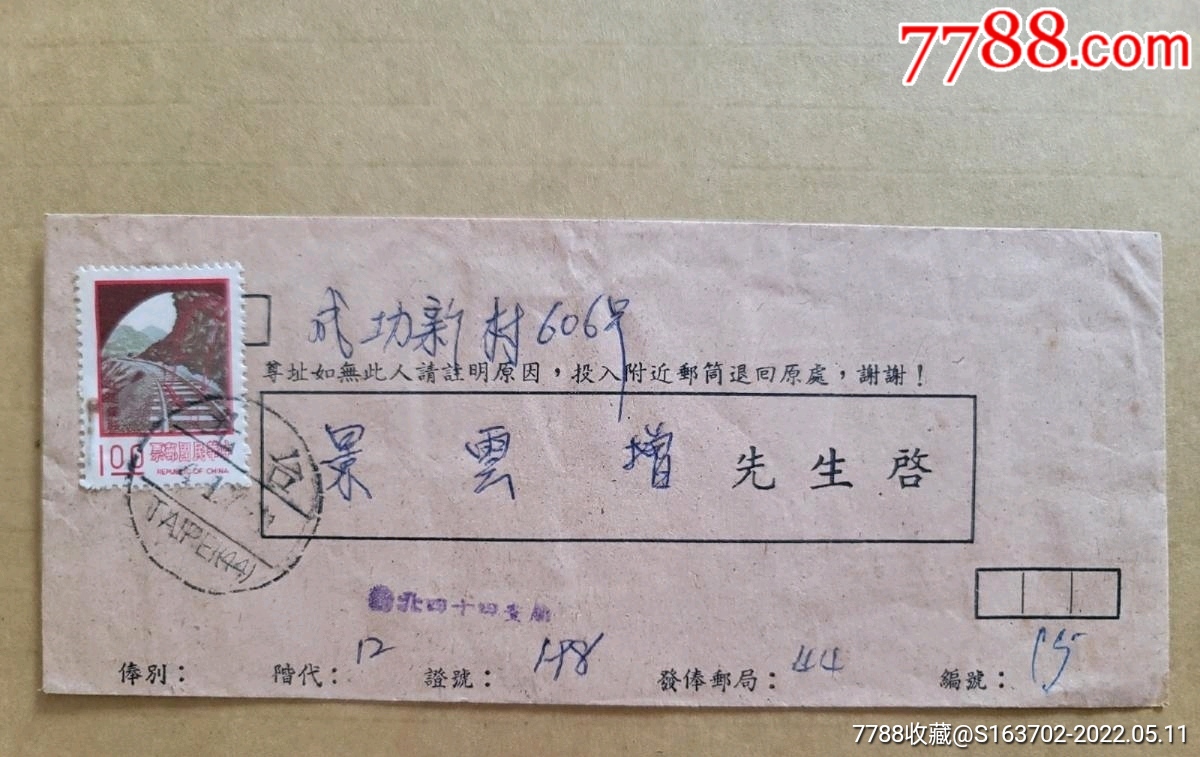 7788.com
成功新村606号
尊址如無此人請註明原因，投入附近郵筒退回原處，謝謝！
景雲增先生啓
100 中華民國郵票
REPUBLIC OF CHINA
TAIPEI(44)
北四十四支局
俸別： 階代：12 證號： 發俸郵局：44 編號：15
7788收藏@S163702-2022.05.11